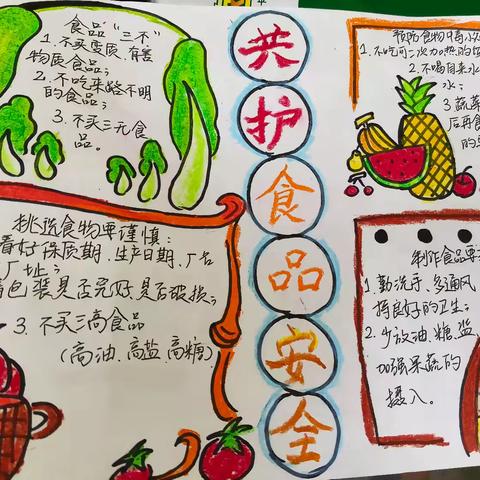 食品“三不”
1. 不买变质、有害
物质食品；
2. 不吃来路不明
的食品；
3. 不买三无食
品。
共护食品安全
预防食物中毒小
1. 不吃可二次加热的饭
2. 不喝自来水
水；
3 蔬菜
后再食
的
挑选食物要谨慎：
看好保质期、生产日期、厂名
厂址；
包装是否完好，是否破损；
3. 不买三高食品
（高油、高盐、高糖）
制作食品要
1. 勤洗手、多通风
持良好的卫生；
2. 少放油、糖、盐
加强果蔬的
摄入。